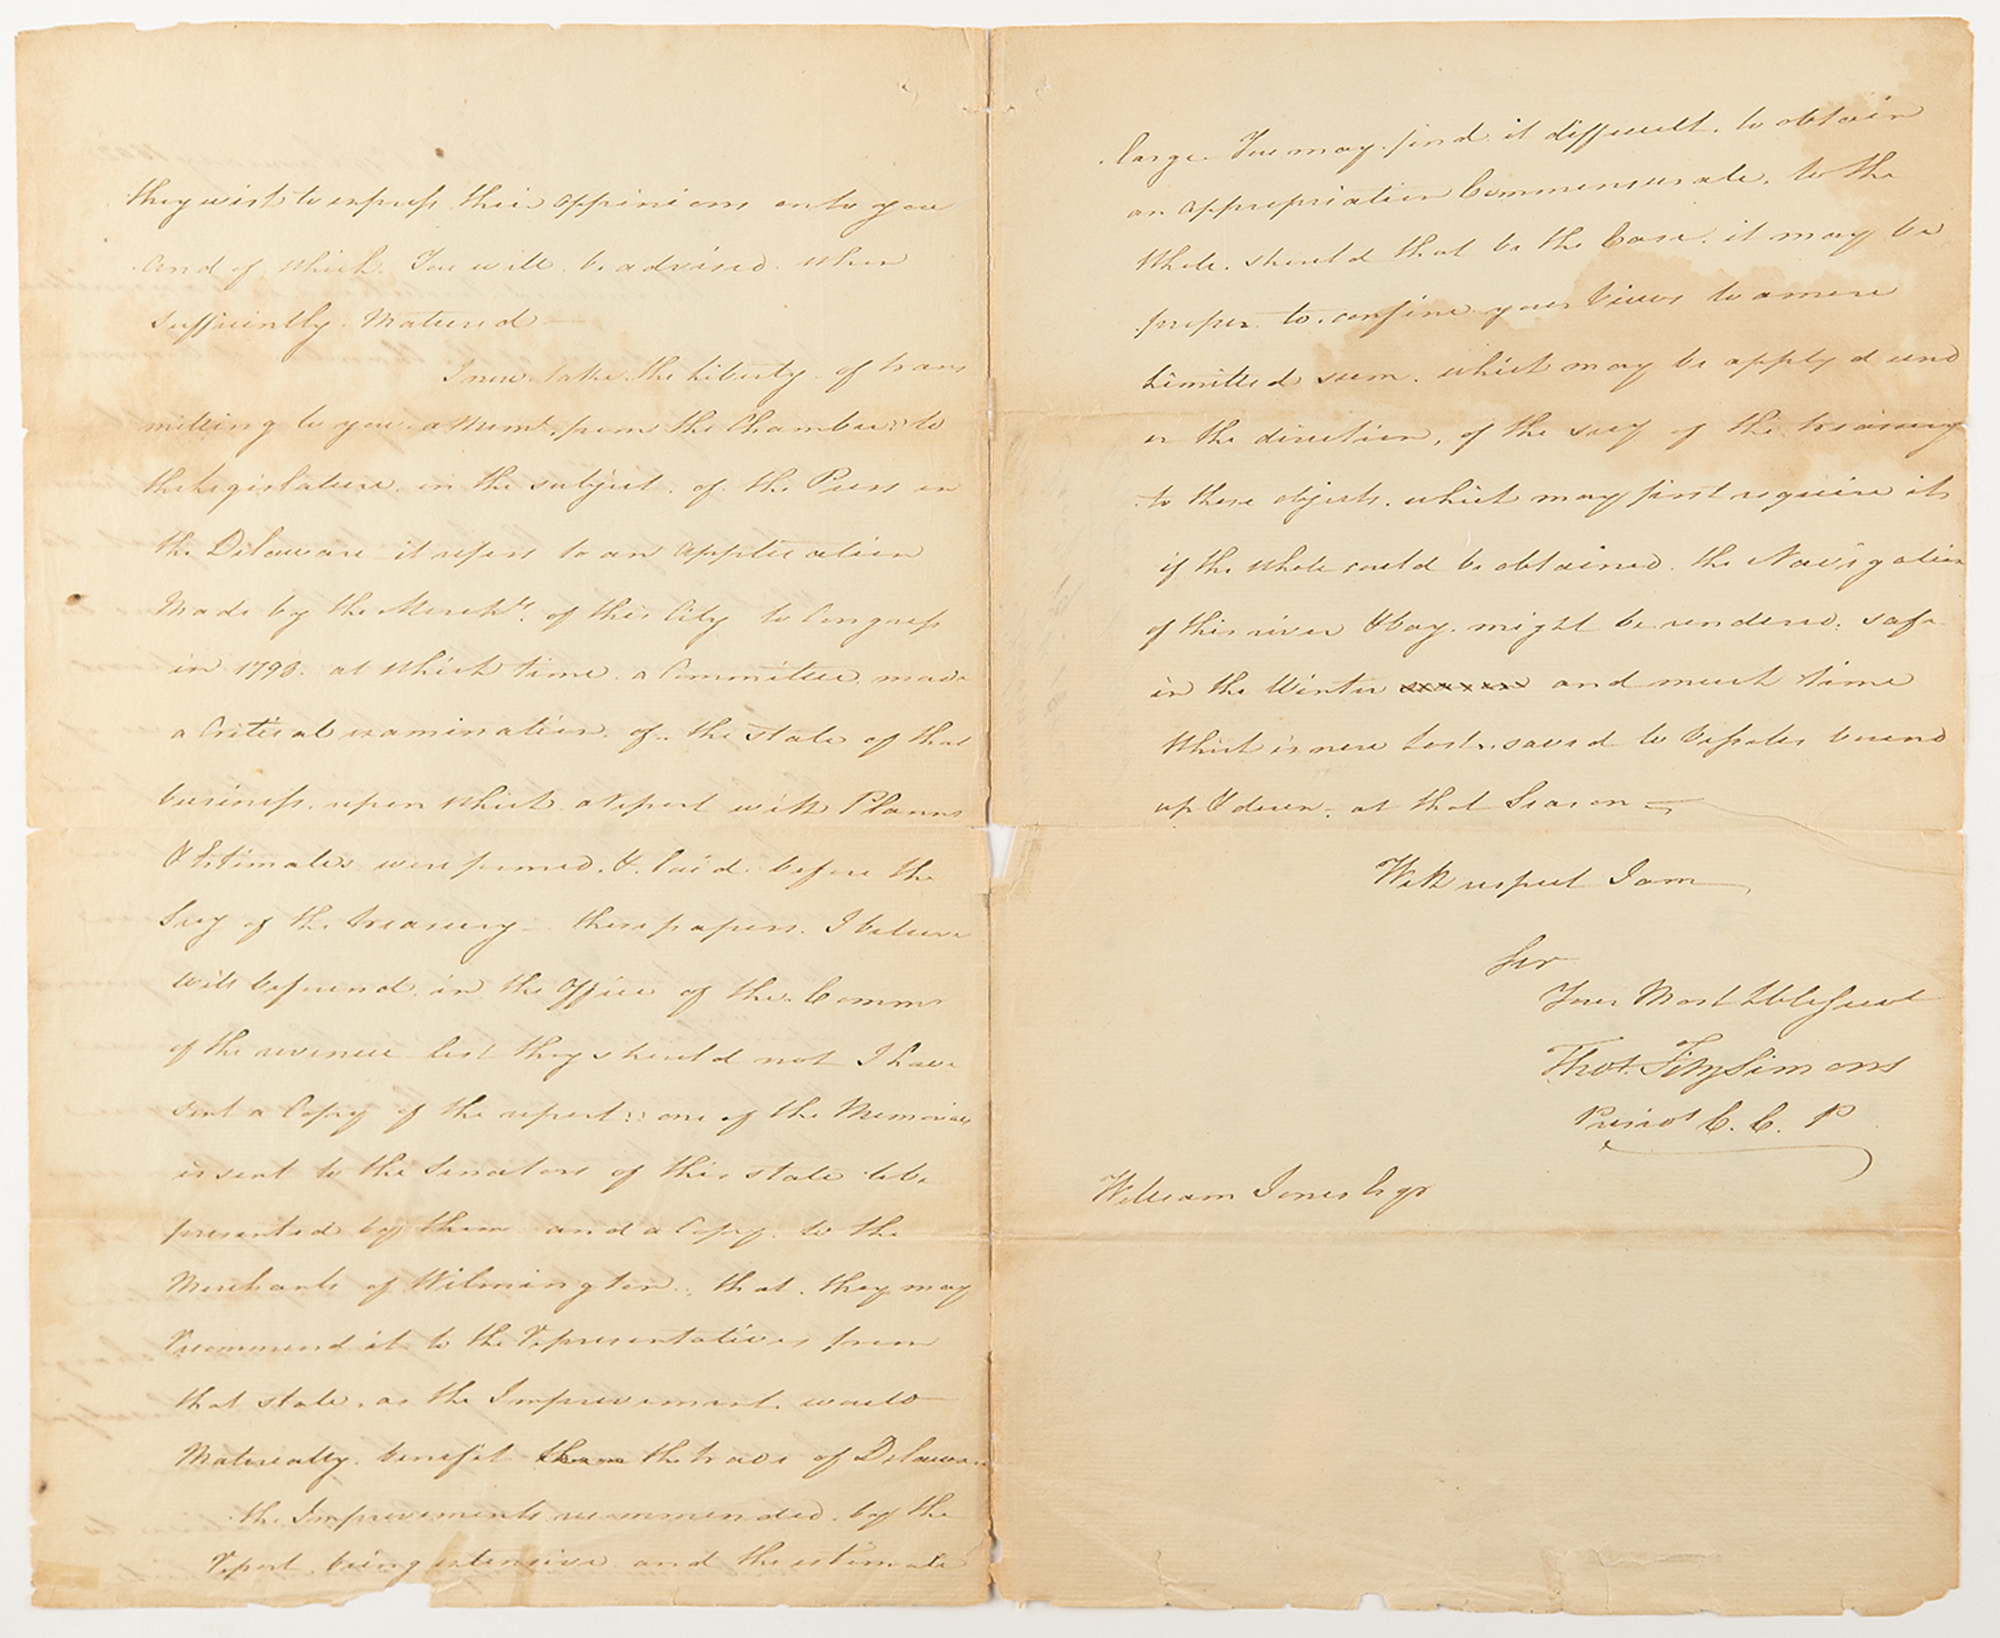 they wish to express their oppinions on to you
and of which. You will be advised when
sufficiently Matured —
I now take the Liberty of trans
mitting to you a Meml. from the Chamber to
the Legislature on the subject of the Piers in
the Delaware it refers to an application
Made by the Merchts. of this City to Congress
in 1790. at which time a Committee made
a Critical examination of the state of that
business. upon which a report with Planns
& Estimates were formed. & laid before the
Secy of the treasury — these papers. I believe
will be found in the Office of the Commr
of the revenue lest they should not I have
sent a Copy of the report: one of the Memorials
is sent to the Senators of this state to be
presented by them and a Copy to the
Merchants of Wilmington, that they may
recommend it to the representatives from
that state, as the Improvement would
Materially benefit them the trade of Delaware
the Improvements recommended by the
report being extensive and the estimate
large You may find it diffucult to obtain
an appropriation Commensurate, to the
Whole. should that be the Case. it may be
proper to confine your Views to a more
Limitted sum. which may be applyd und
er the direction, of the secy of the treasury
to those objects. which may first require it
if the whole could be obtained. the Navigation
of this river & bay might be rendered, safe
in the Winter and much time
Which is now Lost. saved to Vessels bound
up & down. at that Season —
With respect I am
Sir
Your Most Hble Servt
Thos. FitzSimons
Presidt C. C. P
William Jones Esqr